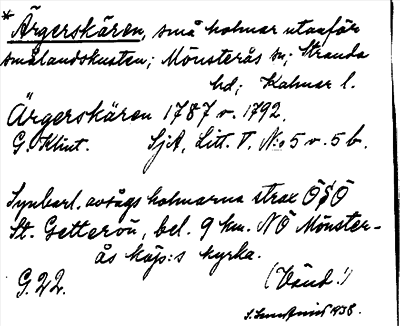 * Ärgerskären, små holmar utanför
smålandskusten; Mönsterås sn; Stranda
hd; Kalmar l.
Ärgerskären 1787 o. 1792.
G. Klint. SjA, Litt. T. N:o 5 o. 5 b.
Synbarl. avsågs holmarna strax ÖSÖ
St. Getterön, bel. 9 km. NÖ Mönster-
ås köp:s kyrka.
G. 22. (Vänd!)
1938.